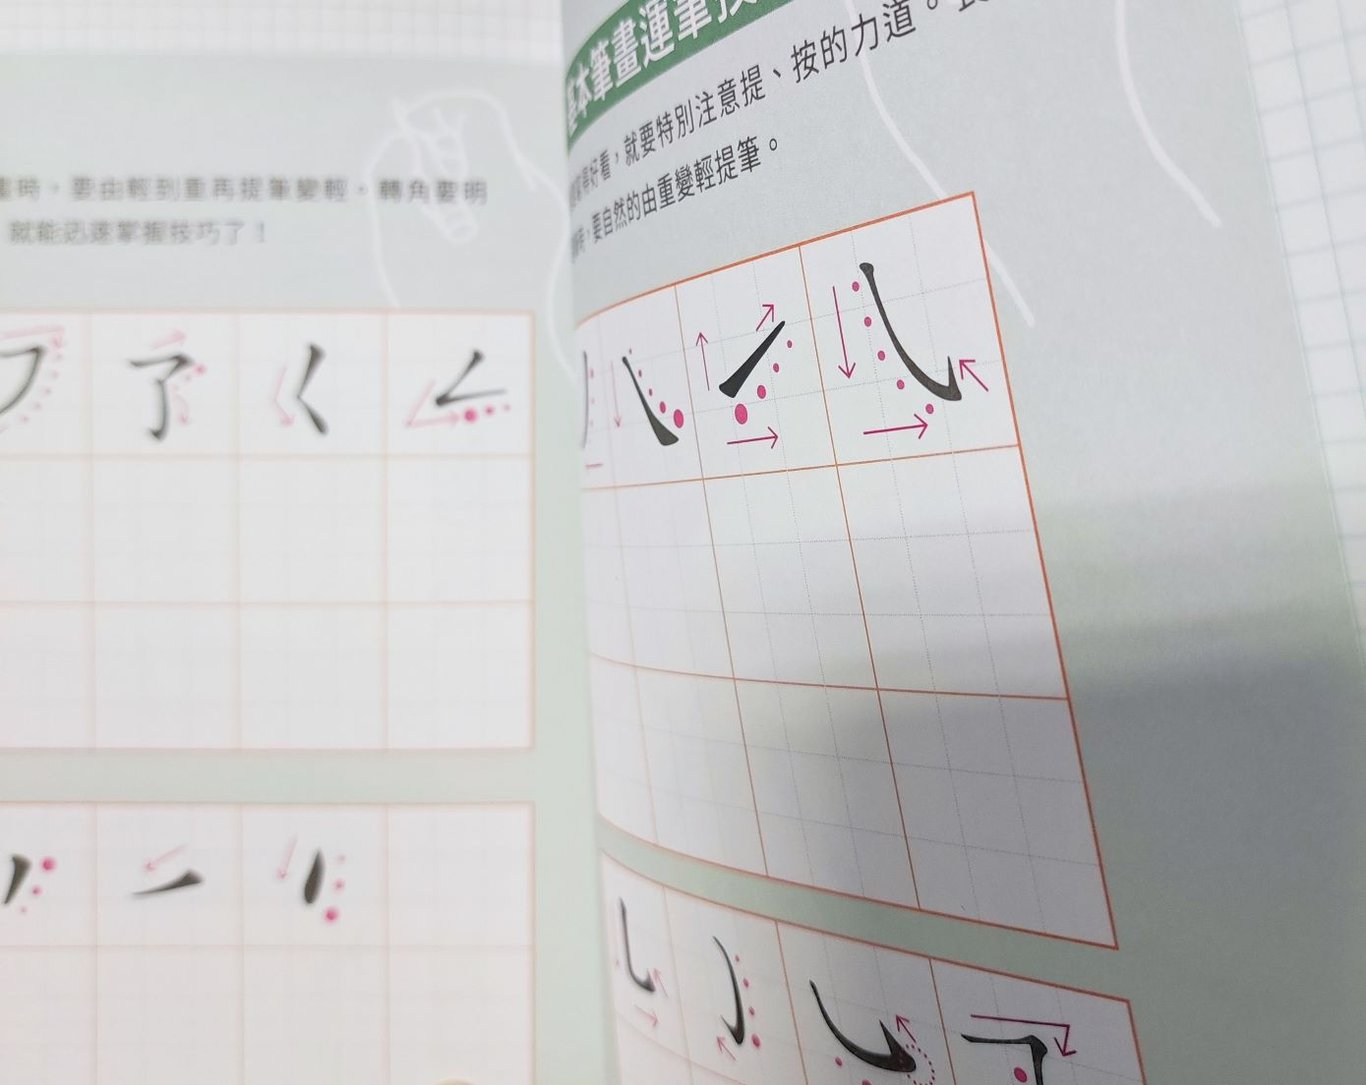 時，要由輕到重再提筆變輕，轉角要明
就能迅速掌握技巧了！
基本筆畫運筆技
得好看，就要特別注意提、按的力道。長
時，要自然的由重變輕提筆。